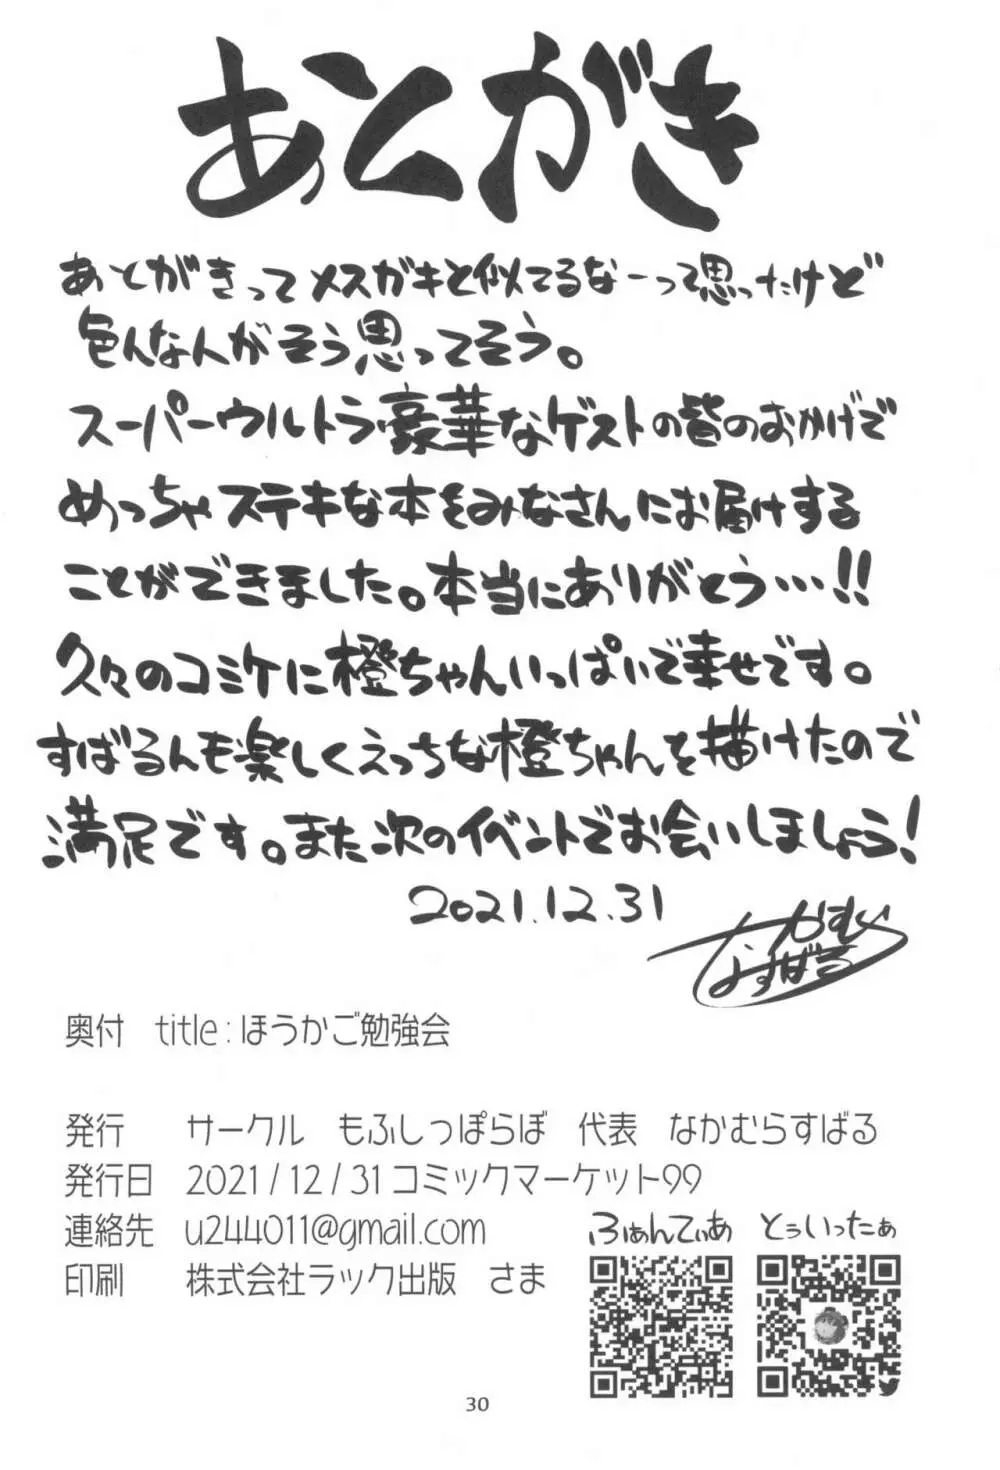 あとがき
あとがきってメスガキと似てるなーって思ったけど
色んな人がそう思ってそう。
スーパーウルトラ豪華なゲストの皆のおかげで
めっちゃステキな本をみなさんにお届けする
ことができました。本当にありがとう…!!
久々のコミケに橙ちゃんいっぱいで幸せです。
すばるんも楽しくえっちな橙ちゃんを描けたので
満足です。また次のイベントでお会いしましょう!
2021.12.31
なかむら
すばる
奥付 title:ほうかご勉強会
発行 サークル もふしっぽらぼ 代表 なかむらすばる
発行日 2021/12/31コミックマーケット99
連絡先 u244011@gmail.com
印刷 株式会社ラック出版 さま
ふぁんてぃあ
とぅいったぁ
30